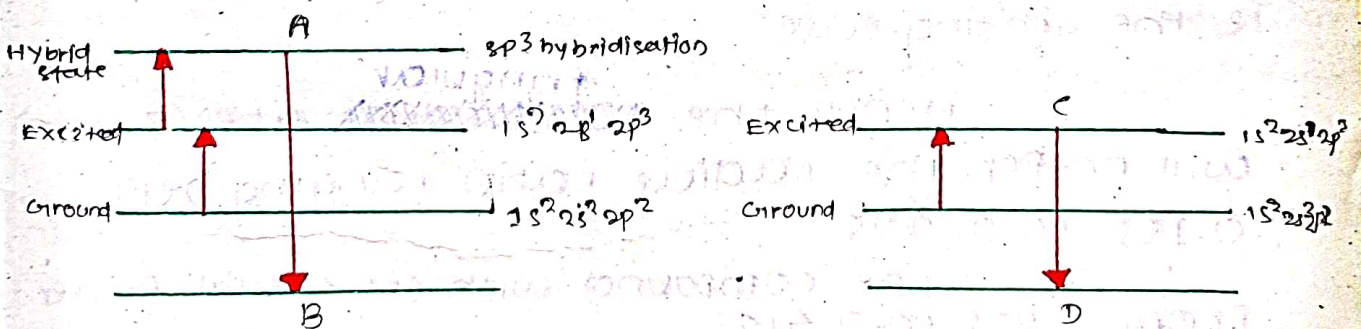 A
Hybrid state
sp3 hybridisation
Excited
1s² 2s¹ 2p³
Ground
1s² 2s² 2p²
B
C
Excited
1s² 2s¹ 2p³
Ground
D